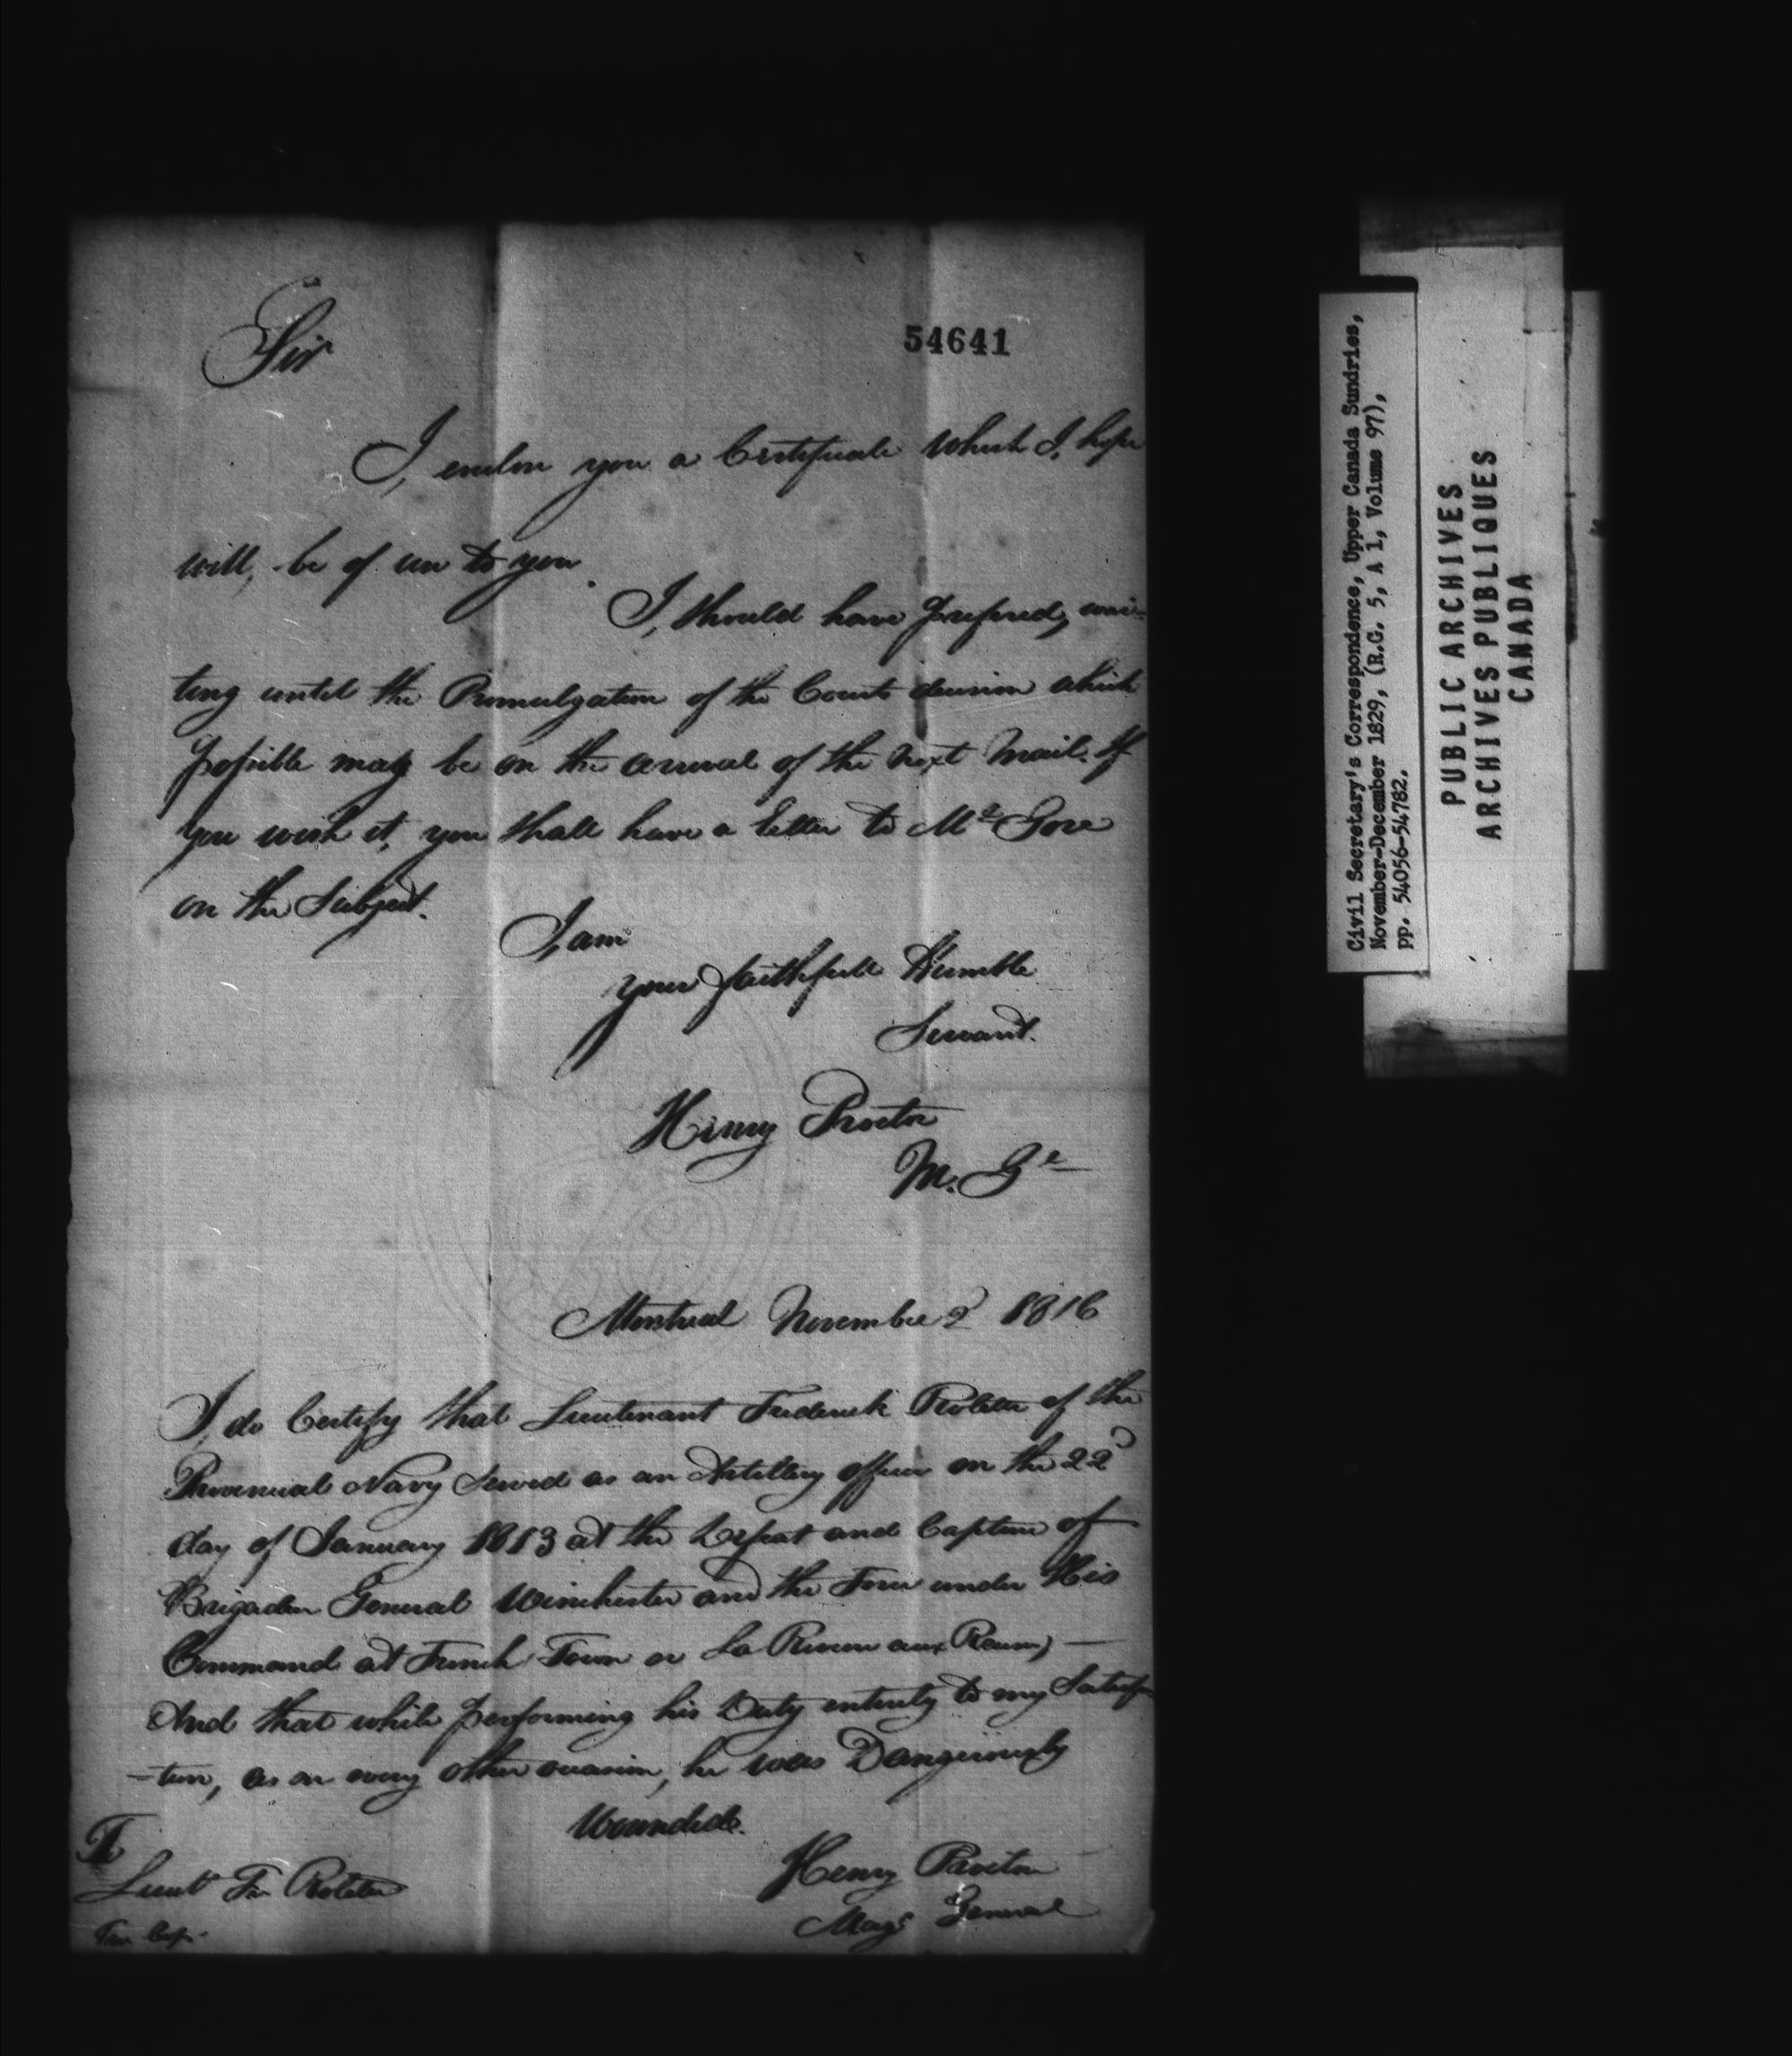 54641
Sir
I, enclose you a Certificate which I, hope
will, be of use to you.
I, should have prefered, wai-
ting until the Promulgation of the Courts decision which
possible may be on the arrival of the next Mail. If
you wish it, you shall have a letter to Mr Gore
on the Subject.
I, am
your faithfull Humble
Servant.
Henry Procter
M. Gl
Montreal November 2 1816
I, do Certify that Lieutenant Frederick Rolette of the
Provincial Navy Served as an Artillery officer on the 22d
day of January 1813 at the Defeat and Capture of
Brigadier General Winchester and the Force under His
Command at French Town or La Riviere aux Raisins, —
And that while performing his Duty entirely to my Satisfac
-tion, as on every other occasion, he was Dangerously
Wounded.
Henry Procter
Majr General
To
Lieut Fr Rolette
Civil Secretary's Correspondence, Upper Canada Sundries,
November-December 1829, (R.G. 5, A 1, Volume 97),
pp. 54056-54782.
PUBLIC ARCHIVES
ARCHIVES PUBLIQUES
CANADA